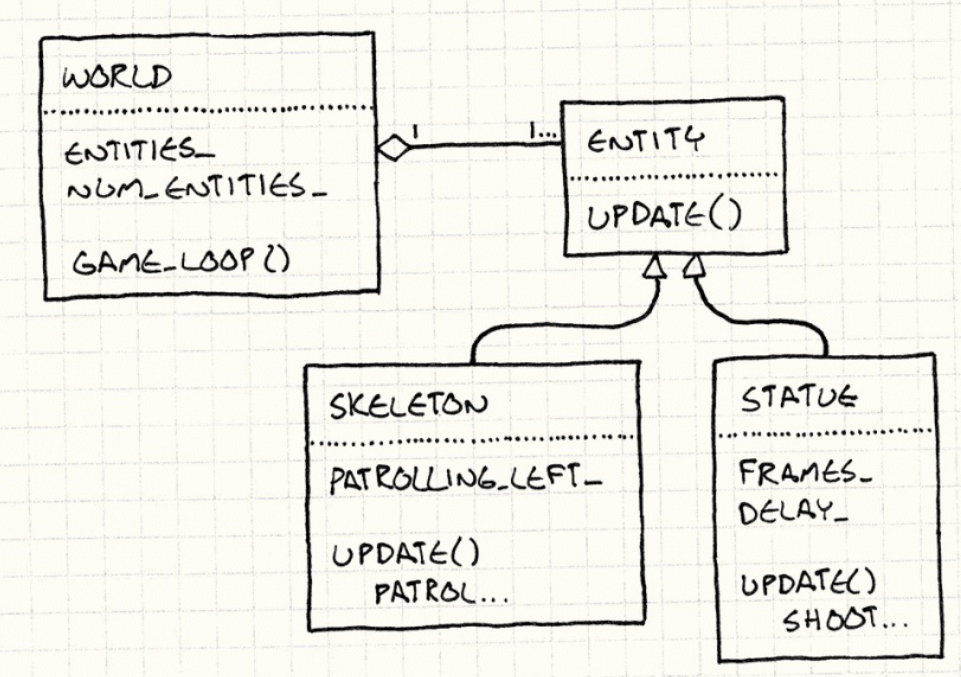 WORLD
ENTITIES_
NUM_ENTITIES_
GAME_LOOP()
1
1...
ENTITY
UPDATE()
SKELETON
PATROLLING_LEFT_
UPDATE()
PATROL...
STATUE
FRAMES_
DELAY_
UPDATE()
SHOOT...